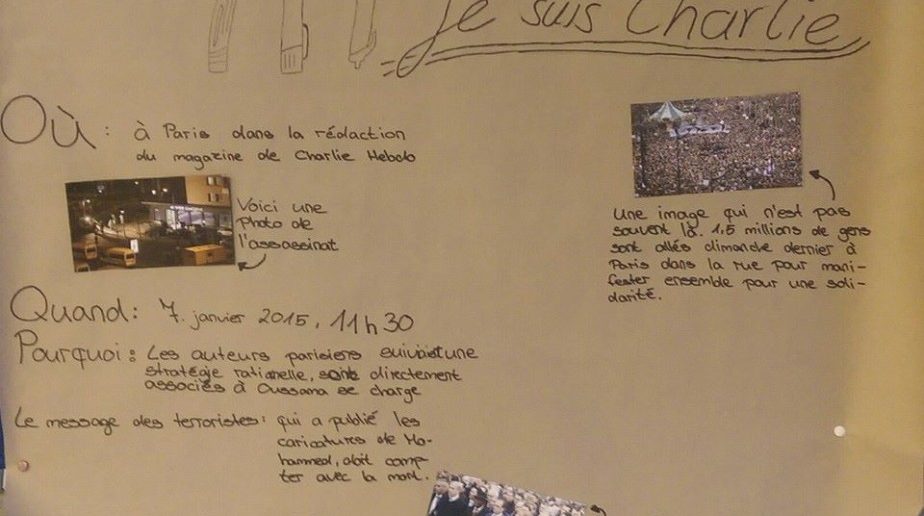 Je suis Charlie
Où : à Paris dans la rédaction
du magazine de Charlie Hebdo
Voici une
photo de
l'assassinat
Une image qui n'est pas
souvent là. 1,5 millions de gens
sont allés dimanche dernier à
Paris dans la rue pour mani-
fester ensemble pour une soli-
darité.
Quand: 7. janvier 2015, 11h30
Pourquoi: Les auteurs parisiens une
stratégie rationelle, sont directement
associés à Oussama se charge
Le message des terroristes: qui a publié les
caricatures de Mo-
hammed, doit comp-
ter avec la mort.